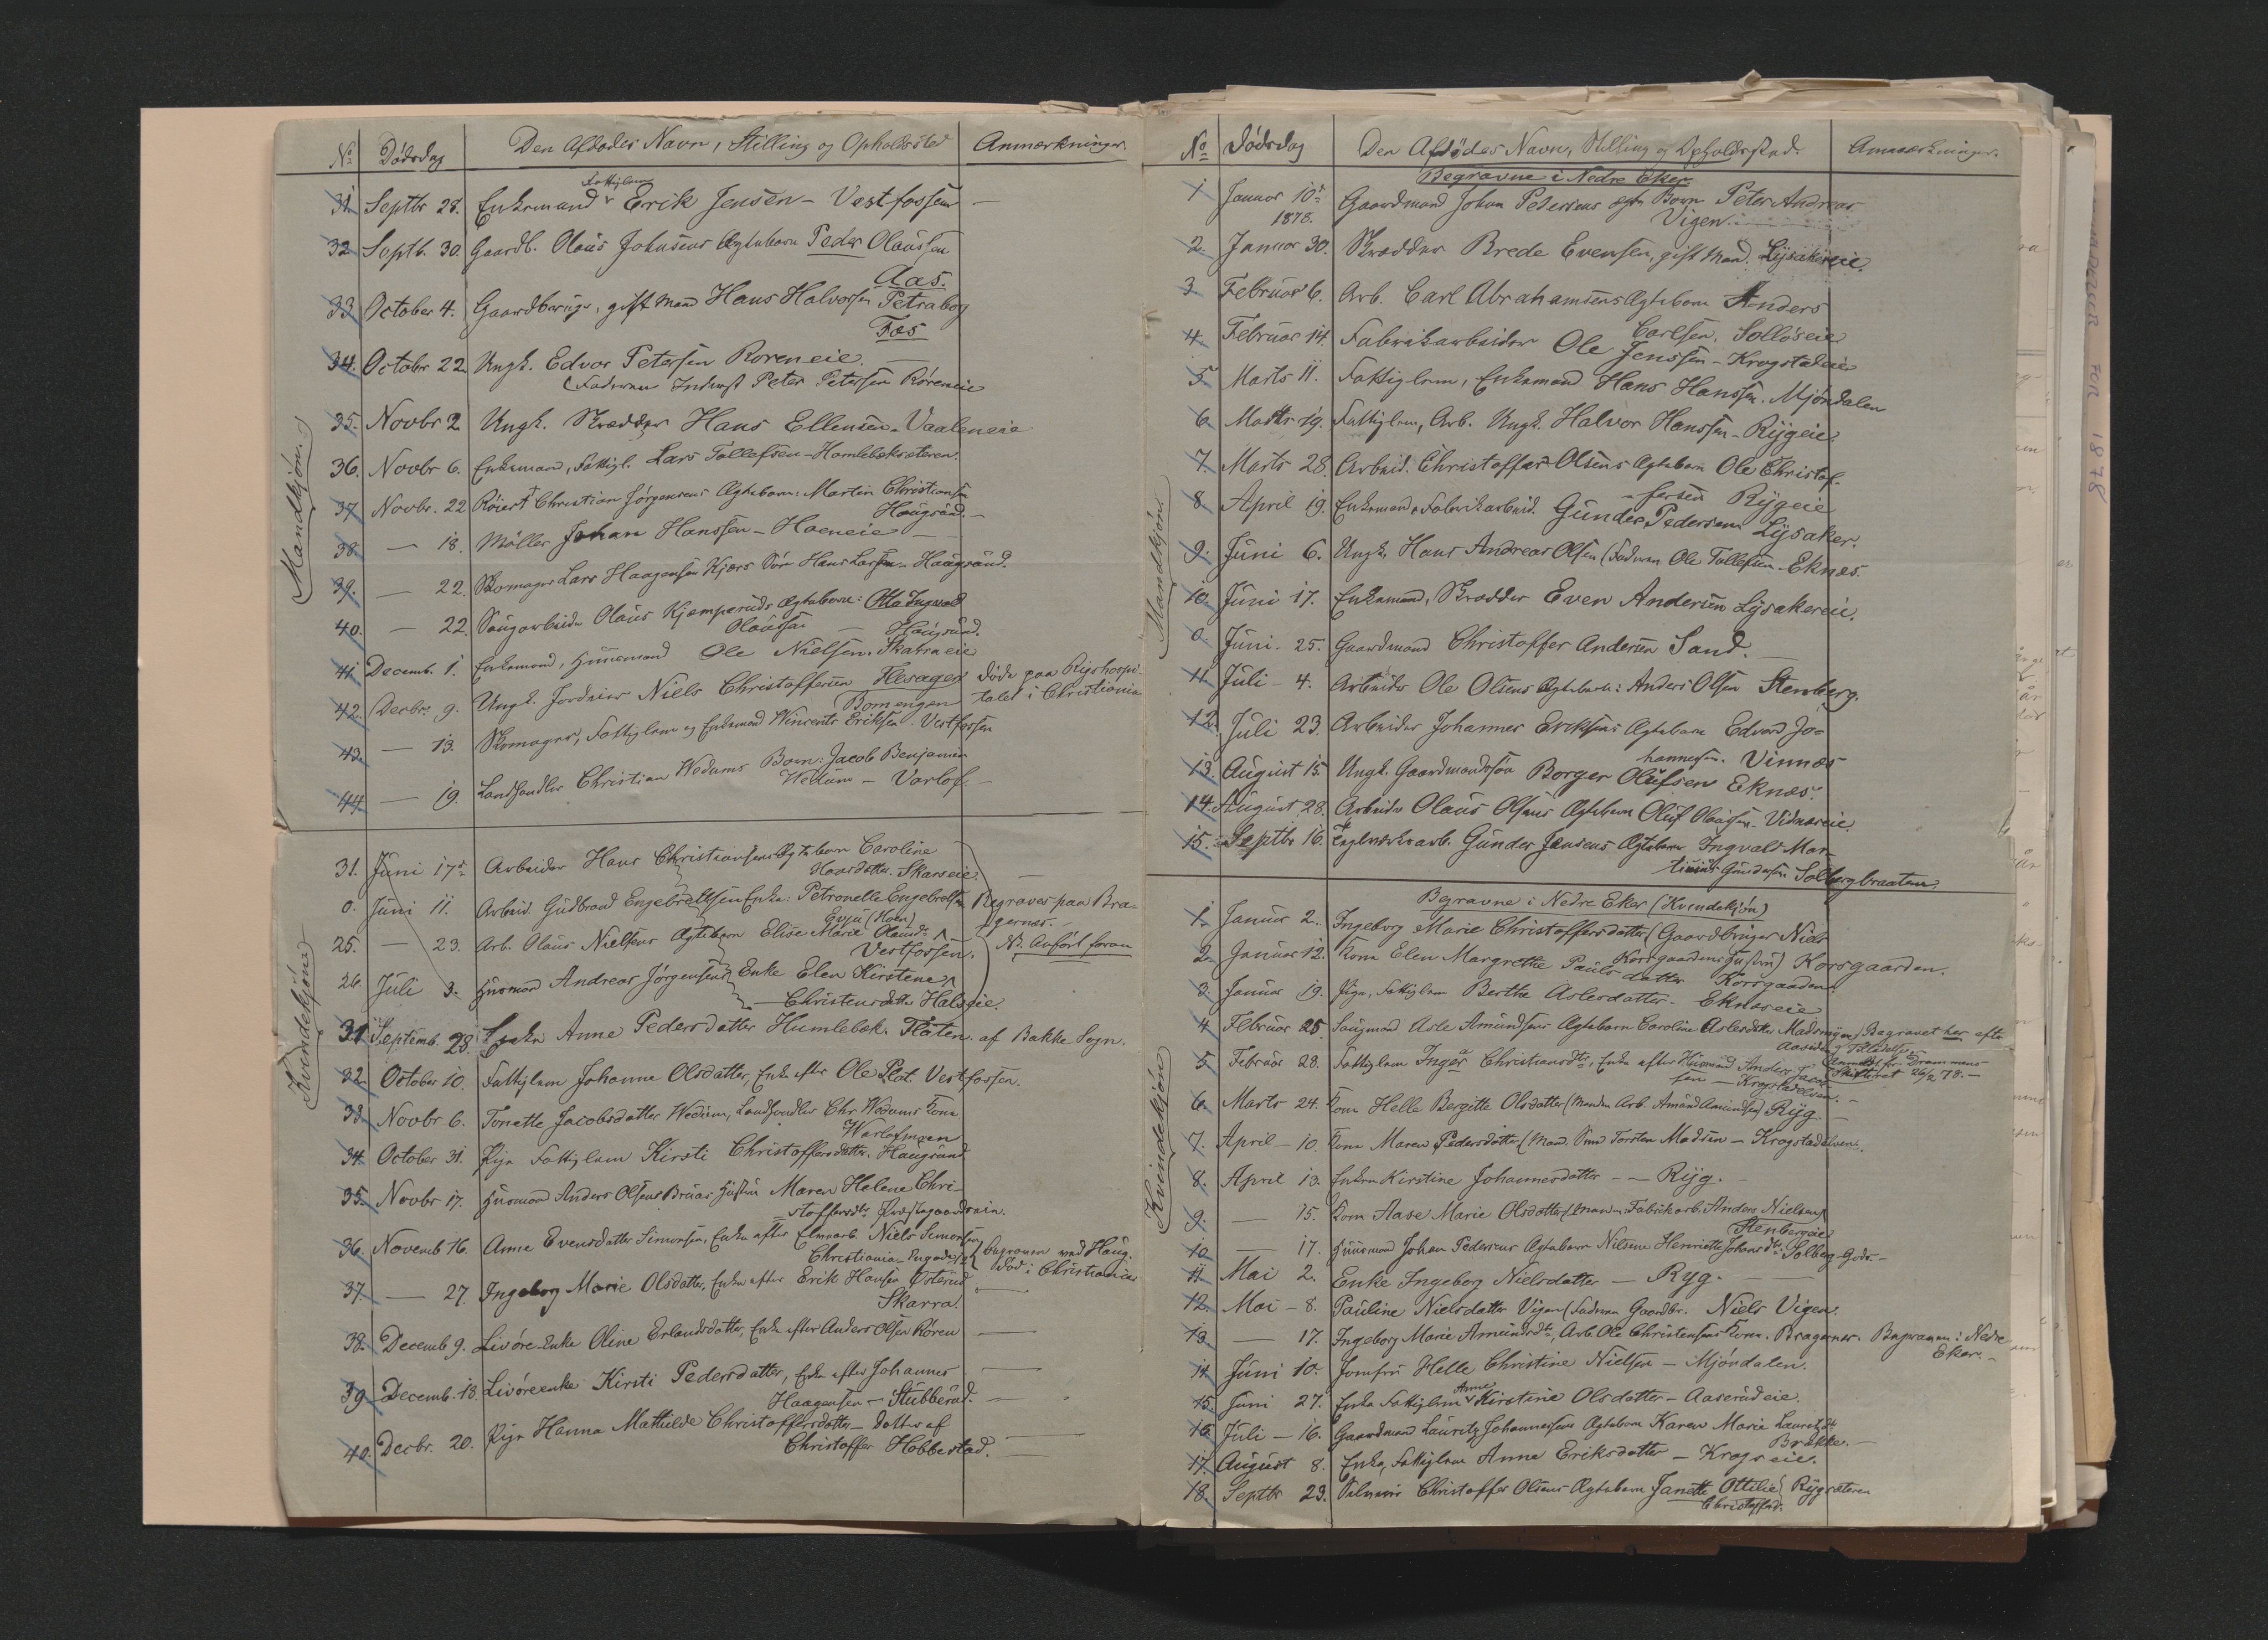 No Dødsdag Den Afdødes Navn, Stilling og Opholdssted Anmærkninger.
Mandkjøn.
31. Septbr 28. Enkemand Fattiglem Erik Jensen - Vestfossen —
32 Septb. 30. Gaardb. Olaus Johnsens Ægtebarn Peder Olaussen
Aas.
33 October 4. Gaardbruger, gift Mand Hans Halvorsen Petraborg
Fos
34. Octobr 22 Ungk. Edvor Petersen Roreneie. —
(Faderen Inderst Peter Petersen Röreneie
35. Novbr 2 Ungk. Skrædder Hans Ellensen - Vaaleneie
36. Novbr 6. Enkemand, Fattigl. Lars Tollefsen - Homlebæksæteren.
37. Novbr. 22 Christian Jørgensens Ægtebarn: Martin Christiansen
Haugsund. —
38. — 18. Møller Johan Hanssen - Hoeneie —
39. — 22. Skomager Lars Haagensen Kjærs Søn Hans Larsen - Haugsund.
40. — 22. Saugarbeider Olaus Kjemperuds Ægtebarn: Otto Ingvald
Olaussen — Haugsund.
41 Decemb. 1. Enkemand, Huusmand Ole Nielsen. Skarraeie
42. Decbr. 9. Ungk. Jordeier Niels Christoffersen Flesager døde paa Rigshospi-
Bomengen talet i Christiania
43. — 13. Skomager, Fattiglem og Enkemand Wincents Eriksen. Vestfossen
44 — 19. Landhandler Christian Wedums Barn: Jacob Benjamin
Wedum - Varlof. —
Kvindekjøn.
31. Juni 17de Arbeider Hans Christiansens Ægtebarn Caroline
Hansdatter. Skarseie. —
0. Juni 11. Arbeid. Gudbrand Engebretsen Enke: Petronelle Engebretsen Begraves paa Bra-
Evju (Hoen) gernes.
25. — 23. Arb. Olaus Nielsens Ægtebarn Elise Marie Olausdr No. Anført foran
Vestfossen.
26. Juli 3. Husmand Andreas Jørgensens Enke Elen Kirstene
— Christensdatter Halseie.
31 Septemb. 28. Enke Anne Pedersdatter Humlebæk. Flaten. af Bakke Sogn.
32. October 10. Fattiglem Johanne Olsdatter, Enke efter Ole Plat. Vestfossen.
33. Novbr 6. Tonette Jacobsdatter Wedum, Landhandler Chr. Wedums Kone
Warlofmoen
34. October 31. Pige Fattiglem Kirsti Christoffersdatter. Haugsund
35. Novbr 17. Husmand Anders Olsens Bruas Hustru Maren Helene Chri-
stoffersdtr Præstegaardseie.
36. Novemb 16. Anne Evensdatter Simonsen, Enke efter Niels Simonsen begraven ved Haug.
Christiania - død i Christiania
37. — 27. Ingeborg Marie Olsdatter, Enke efter Erik Hansen Østerud
Skarra. —
38. Decemb 9. Livøre-enke Oline Erlandsdatter, Enke efter Anders Olsen Rören —
39. Decemb. 13. Livøreenke Kirsti Pedersdatter, Enke efter Johannes —
Haagensen - Stubberud. —
40. Decbr. 20. Pige Hanna Mathilde Christoffersdatter - datter af —
Christoffer Hobbestad. —
No Dødsdag Den Afdødes Navn, Stilling og Opholdssted. Anmærkninger.
Begravne i Nedre Eker
Mandkjøn.
1 Januar 10de Gaardmand Johan Pedersens ægte Barn Peter Andreas
1878. Vigen.
2. Januar 30. Skrædder Brede Evensen, gift Mand. Lysakereie.
3 Februar 6. Arb. Carl Abrahamsens Ægtebarn Anders
Carlsen. Solløseie
4. Februar 14. Fabrikarbeider Ole Jenssen - Krogstadeie
5. Marts 11. Fattiglem, Enkemand Hans Hanssen. Mjøndalen
6. Marts 19. Fattiglem, Arb. Ungk. Halvor Hanssen - Rygeie
7. Marts 28. Arbeid. Christoffer Olsens Ægtebarn Ole Christof-
fersen Rygeie
8. April 19. Enkemand, Fabrikarbeid. Gunder Pedersen Lysaker.
9. Juni 6. Ungk. Hans Andreas Olsen (Faderen Ole Tollefsen - Eknæs.
10. Juni 17. Enkemand, Skrædder Even Andersen Lysakereie.
0. Juni - 25. Gaardmand Christoffer Andersen Sand. —
11. Juli - 4. Arbeider Ole Olsens Ægtebarn: Anders Olsen Stenberg.
12. Juli 23. Arbeider Johannes Eriksens Ægtebarn Edvard Jo-
hannesen. Vinnæs
13. August 15 Ungk. Gaardmandssøn Borger Olufsen Eknæs.
14. August 28. Arbeider Olaus Olsens Ægtebarn Oluf Olaussen - Vidnæseie
15. Septbr 16. Teglværksarb. Gunder Jensens Ægtebarn Ingvald Mar-
tinius Gundersen Solbergbraaten.
Begravne i Nedre Eker (Kvindekjøn)
Kvindekjøn
1. Januar 2. Ingeborg Marie Christoffersdatter (Gaardbruger Niels
Korsgaardens Hustru) Korsgaarden.
2. Januar 12. Kone Elen Margrethe Paulsdatter Korsgaarden
3. Januar 19. Pige, Fattiglem Berthe Aslesdatter. Eknæseie
4 Februar 25. Saugmand Asle Amundsens Ægtebarn Caroline Aslesdatter Madsmyren) Begravet her efter
Tilladelse
5. Februar 28. Fattiglem Inger Christiansdtr, Enke efter Huusmand Anders Jacob- fra Drammens
sen - Krogstadelven. - Skifteret 26/2 78. —
6. Marts 24. Kone Helle Bergitte Olsdatter (Manden Arb. Amund Amundsen) Ryg. —
7. April - 10. Kone Maren Pedersdatter (Mand. Torsten Madsen - Krogstadelven.
8. April 13. Enken Kirstine Johannesdatter - - Ryg. —
9. — 15. Kone Aase Marie Olsdatter (Manden Fabrikarb. Anders Nielsen)
Stenbergeie
10 — 17. Huusmand Johan Pedersens Ægtebarn Nilsine Henriette Johansdtr. Solberg-Gods. —
11 Mai 2. Enke Ingeborg Nielsdatter - Ryg. —
12. Mai - 8. Pauline Nielsdatter Vigen (Faderen Gaardbr. Niels Vigen.
13 — 17. Ingeborg Marie Amundsdtr, Arb. Ole Christensens Kone. Bragernes. Begraven i Nedre
Eker. —
14 Juni 10. Jomfru Helle Christine Nielsen - Mjøndalen.
15. Juni 27. Enke Fattiglem Anne Kirstine Olsdatter - Aaserudeie.
16. Juli - 16. Gaardmand Lauritz Johannessens Ægtebarn Karen Marie Lauritzdtr
Brække. —
17. August 8. Enke, Fattiglem Anne Eriksdatter - Krogseie.
18. Septbr 23. Christoffer Olsens Ægtebarn Janette Ottilie Rygsæteren
Christoffersd.
FOR 1878